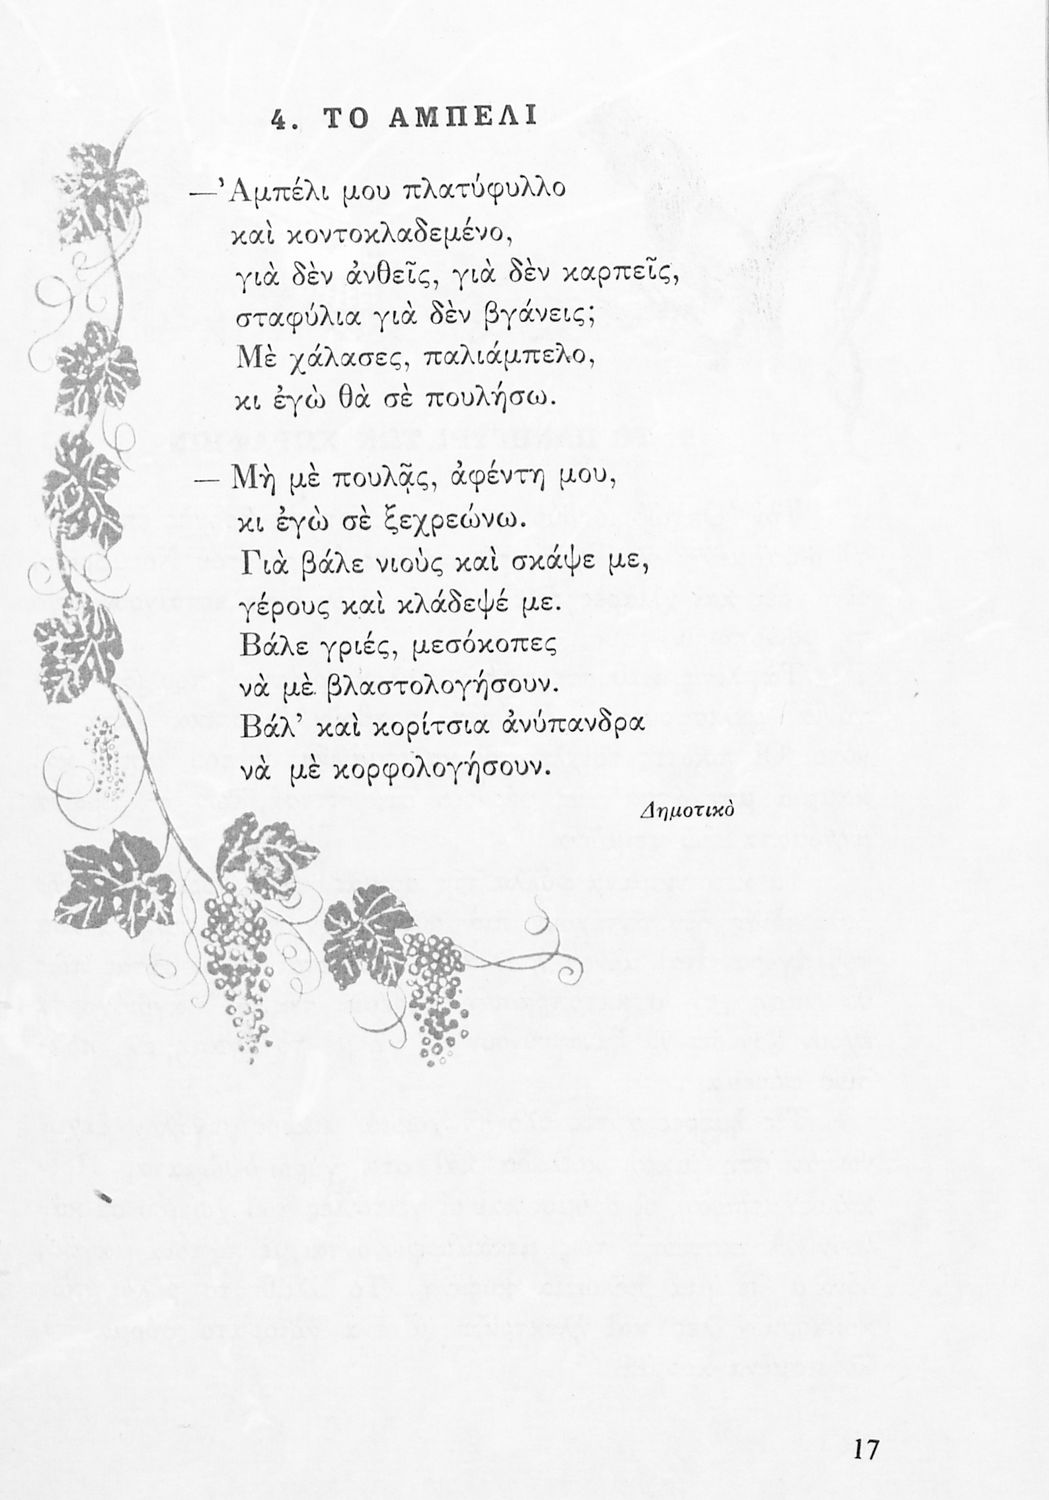 4. ΤΟ ΑΜΠΕΛΙ
—Ἀμπέλι μου πλατύφυλλο
καὶ κοντοκλαδεμένο,
γιὰ δὲν ἀνθεῖς, γιὰ δὲν καρπεῖς,
σταφύλια γιὰ δὲν βγάνεις;
Μὲ χάλασες, παλιάμπελο,
κι ἐγὼ θὰ σὲ πουλήσω.
— Μὴ μὲ πουλᾷς, ἀφέντη μου,
κι ἐγὼ σὲ ξεχρεώνω.
Γιὰ βάλε νιοὺς καὶ σκάψε με,
γέρους καὶ κλάδεψέ με.
Βάλε γριές, μεσόκοπες
νὰ μὲ βλαστολογήσουν.
Βάλ' καὶ κορίτσια ἀνύπανδρα
νὰ μὲ κορφολογήσουν.
Δημοτικὸ
17